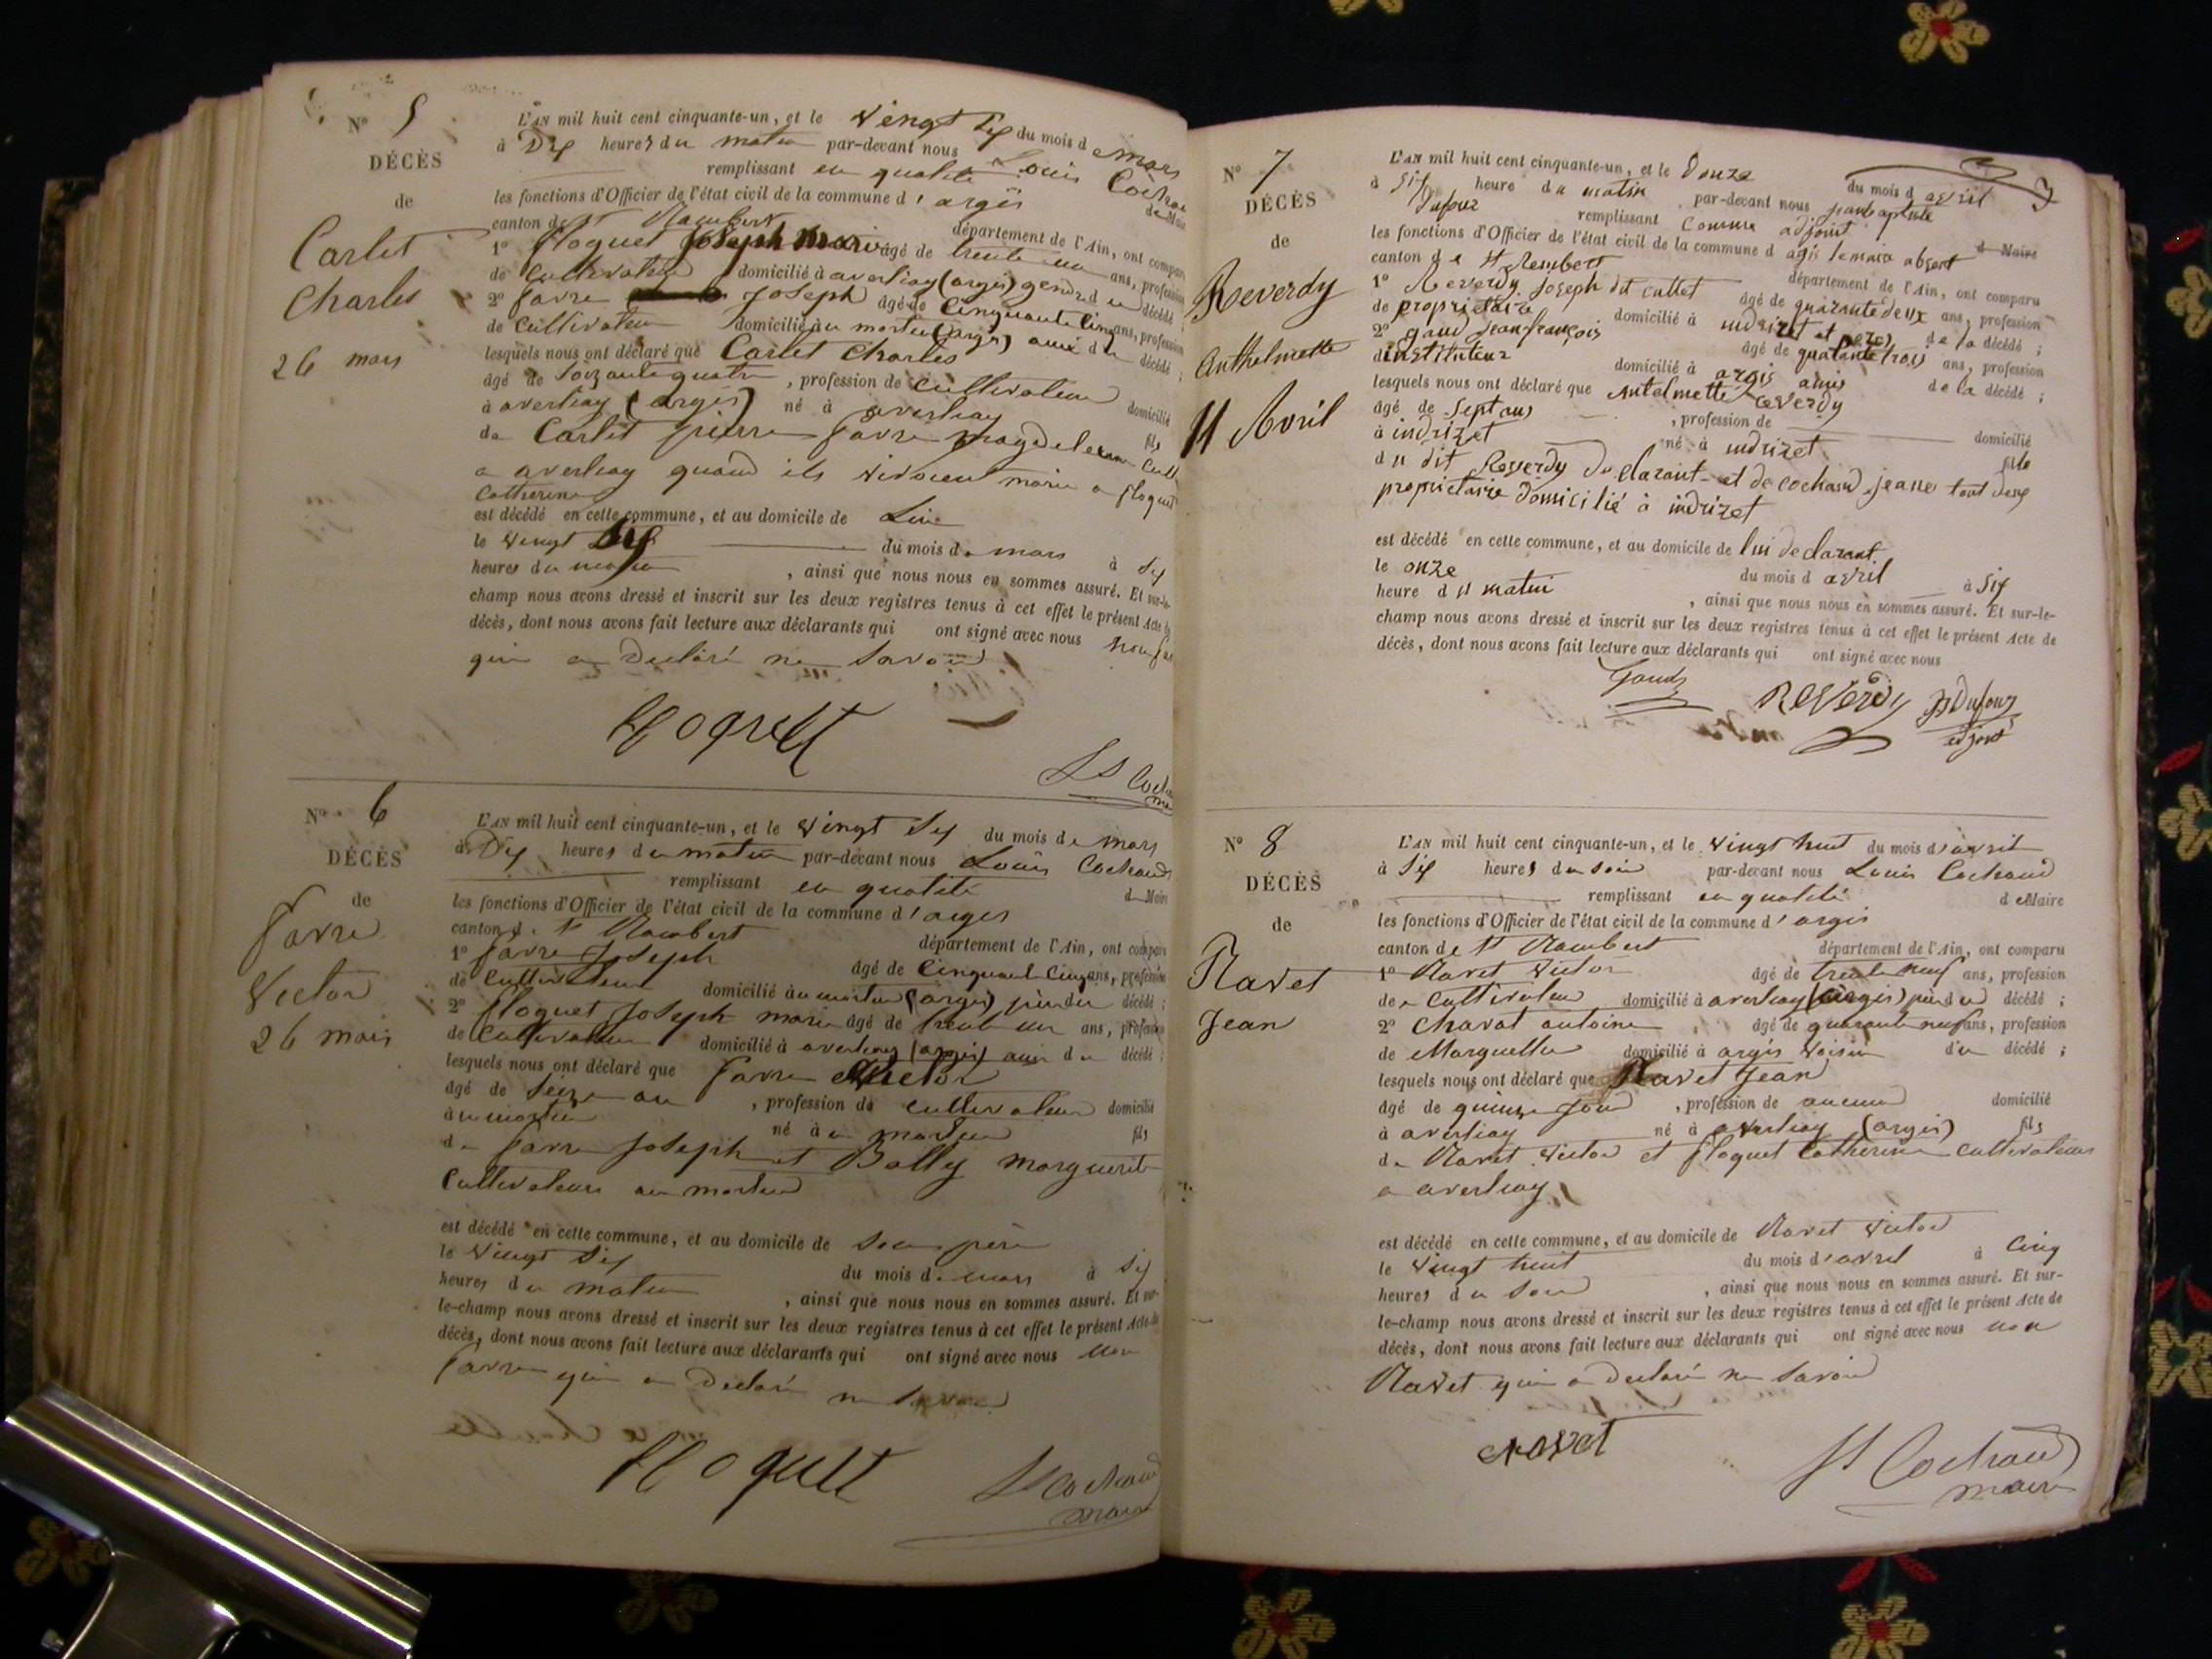 N° 5
DÉCÈS
de
Carlet
Charles
26 mars
L'AN mil huit cent cinquante-un, et le vingt six du mois de mars
à Dix heures du matin par-devant nous Louis Cochau
remplissant en qualité de Maire
les fonctions d'Officier de l'état civil de la commune d'argis
canton de St Rambert département de l'Ain, ont compar
1° floquet Joseph Marie âgé de trente un ans, profession
de cultivateur domicilié à averliay (argis) gendre du décédé ;
2° favre Joseph âgé de Cinquante Cinq ans, profession
de Cultivateur domicilié au mortier (argis) ami du décédé ;
lesquels nous ont déclaré que Carlet Charles
âgé de Soixante quatre , profession de cultivateur domicilié
à averliay (argis) né à averliay fils
de Carlet pierre favre magdeleine cult
a averliay quand ils vivoient marie a floquet
Catherine
est décédé en cette commune, et au domicile de Lui
le vingt six du mois de mars à six
heures du matin , ainsi que nous nous en sommes assuré. Et sur-le-
champ nous avons dressé et inscrit sur les deux registres tenus à cet effet le présent Acte de
décès, dont nous avons fait lecture aux déclarants qui ont signé avec nous non fa
qui a Declaré ne Savoir
floquet
Ls Coch
ma
N° 6
DÉCÈS
de
favre
Victor
26 mars
L'AN mil huit cent cinquante-un, et le vingt six du mois de mars
à Dix heures du matin par-devant nous Louis Cochaud
remplissant en qualité de Maire
les fonctions d'Officier de l'état civil de la commune d'argis
canton de St Rambert département de l'Ain, ont comparu
1° favre Joseph âgé de Cinquante Cinq ans, profession
de Cultivateur domicilié au mortier (argis) père du décédé ;
2° floquet Joseph marie âgé de trente un ans, profession
de Cultivateur domicilié à averliay (argis) ami du décédé ;
lesquels nous ont déclaré que favre Victor
âgé de Seize an , profession de cultivateur domicilié
au mortier né à au mortier fils
de favre Joseph et Bolly marguerite
Cultivateurs au mortier
est décédé en cette commune, et au domicile de Son père
le vingt six du mois de mars à six
heures du matin , ainsi que nous nous en sommes assuré. Et sur-
le-champ nous avons dressé et inscrit sur les deux registres tenus à cet effet le présent Acte de
décès, dont nous avons fait lecture aux déclarants qui ont signé avec nous non
favre qui a Declaré ne Savoir
floquet
Ls Cochaud
maire
N° 7
DÉCÈS
de
Reverdy
Anthelmette
11 Avril
L'AN mil huit cent cinquante-un, et le Douze du mois d avril
à six heure du matin par-devant nous jean baptiste
Dufour remplissant Comme adjoint d Maire
les fonctions d'Officier de l'état civil de la commune d agis le maire absent
canton de st Rembert département de l'Ain, ont comparu
1° Reverdy joseph dit cuttet âgé de quarante deux ans, profession
de proprietaire domicilié à indrizet et pere de la décédé ;
2° gaud jean françois âgé de quarante trois ans, profession
d instituteur domicilié à argis amis de la décédé ;
lesquels nous ont déclaré que antelmette reverdy
âgé de Sept ans , profession de domicilié
à indrizet né à indrizet fille
du dit Reverdy Declarant et de cochand jeane tout deux
proprietaire Domicilié à indrizet
est décédé en cette commune, et au domicile de lui declarant
le onze du mois d avril à six
heure du matin , ainsi que nous nous en sommes assuré. Et sur-le-
champ nous avons dressé et inscrit sur les deux registres tenus à cet effet le présent Acte de
décès, dont nous avons fait lecture aux déclarants qui ont signé avec nous
Gaud Reverdy JB Dufour
adjoint
N° 8
DÉCÈS
de
Ravet
Jean
L'AN mil huit cent cinquante-un, et le vingt huit du mois d'avril
à six heures du soir par-devant nous Louis Cochaud
remplissant en qualité d Maire
les fonctions d'Officier de l'état civil de la commune d'argis
canton de St Rambert département de l'Ain, ont comparu
1° Ravet Victor âgé de trente neuf ans, profession
de Cultivateur domicilié à averliay (argis) père du décédé ;
2° Charvat antoine âgé de quarante neuf ans, profession
de Marguellier domicilié à argis voisin du décédé ;
lesquels nous ont déclaré que Ravet Jean
âgé de quinze jour , profession de aucune domicilié
à averliay né à averliay (argis) fils
de Ravet Victor et floquet Catherine cultivateurs
a averliay
est décédé en cette commune, et au domicile de Ravet Victor
le vingt huit du mois d'avril à Cinq
heures du soir , ainsi que nous nous en sommes assuré. Et sur-
le-champ nous avons dressé et inscrit sur les deux registres tenus à cet effet le présent Acte de
décès, dont nous avons fait lecture aux déclarants qui ont signé avec nous non
Ravet qui a Declaré ne Savoir
Ls Cochaud
maire